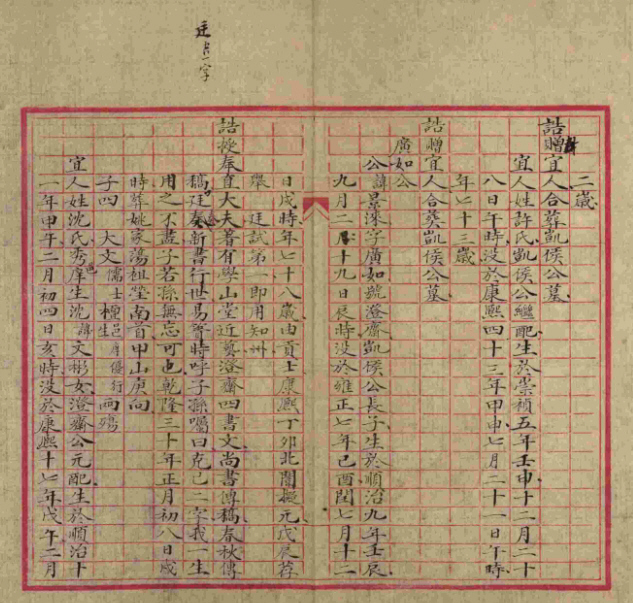 廷
二歲
誥贈宜人合葬凱侯公墓
宜人姓許氏凱侯公繼配生於崇禎五年壬申十二月二十
八日午時没於康熙四十三年甲申七月二十一日午時
年七十三歲
誥贈宜人合葬凱侯公墓
廣如公
公諱景深字廣如號澄齋凱侯公長子生於順治九年壬辰
九月二十九日辰時没於雍正七年己酉閏七月十二
日戌時年七十八歲由貢士康熙丁卯北闈擬元戊辰荐
舉廷試第一即用知州
誥授奉直大夫著有學山堂近藝澄齋四書文尚書傳稿春秋傳
稿廷奏新書行世易簀時呼子孫囑曰克己二字我一生
用之不盡子若孫無忘可也乾隆三十年正月初八日戌
時葬姚家蕩祖塋南首甲山庚向
子四 大文儒士 標邑庠優行生 兩殤
宜人姓沈氏秀庠生沈諱文彬女澄齋公元配生於順治十
一年甲午二月初四日亥時没於康熙十七年戊午二月